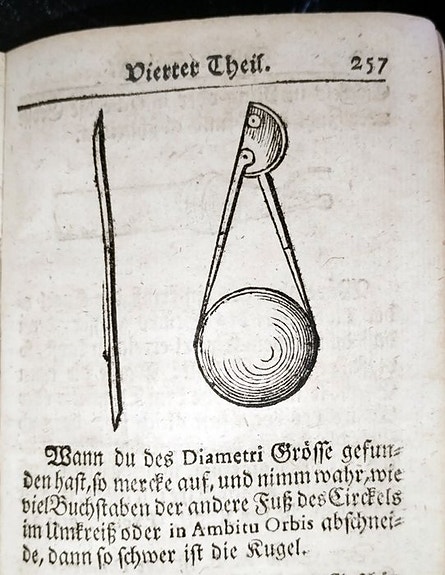 Vierter Theil. 257
Wann du des Diametri Grösse gefun-
den hast, so mercke auf, und nimm wahr, wie
viel Buchstaben der andere Fuß des Circkels
im Umkreiß oder in Ambitu Orbis abschnei-
de, dann so schwer ist die Kugel.